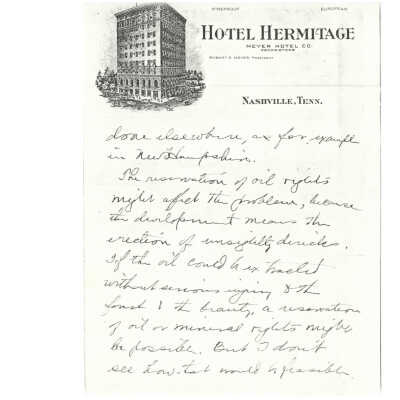 FIREPROOF
EUROPEAN
HOTEL HERMITAGE
MEYER HOTEL CO.
PROPRIETORS
ROBERT R. MEYER, PRESIDENT
NASHVILLE, TENN.
done elsewhere, as for example
in New Hampshire.
The reservation of oil rights
might affect the problem, because
the development means the
erection of unsightly derricks.
If the oil could be extracted
without serious injury to the
forest & the beauty, a reservation
of oil or mineral rights might
be possible. But I don't
see how that would be feasible.